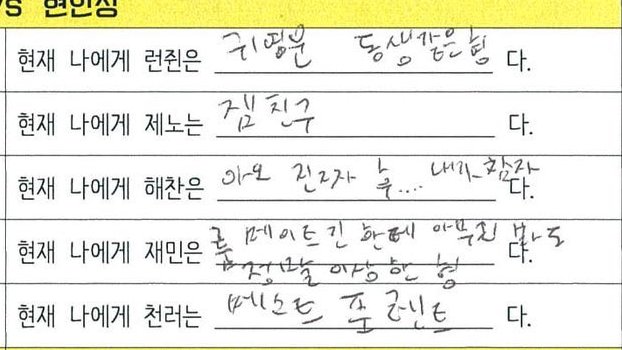 vs 현인상
현재 나에게 런쥔은 귀영운 동생같은 형 다.
현재 나에게 제노는 짐친구 다.
현재 나에게 해찬은 아오 진ㅈ자 후.... 내가 참자 다.
현재 나에게 재민은 룸메이트긴 한데 아무리 봐도 정말 이상한 형 다.
현재 나에게 천러는 베스트 프렌드 다.